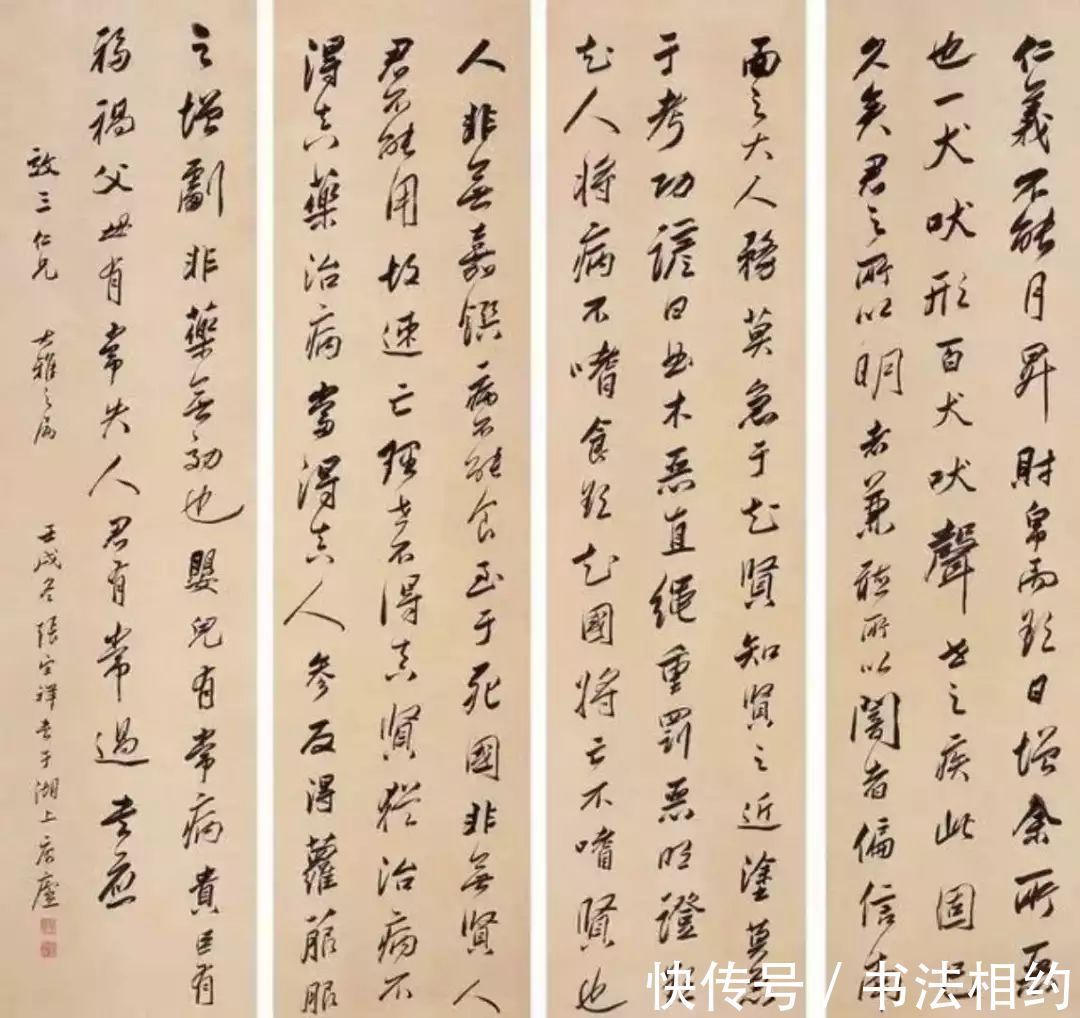 仁義不能月昇財帛而欲日增余所惡
也一犬吠形百犬吠聲世之疾此固已
久矣君之所以明者兼聽所以闇者偏信南
面之大人務莫急于知賢知賢之近塗莫急
于考功諺曰曲木惡直繩重罰惡明證欲
知人將病不嗜食欲知國將亡不嗜賢也
人非無嘉饌病不能食至于死國非無賢人
君不能用故速亡理世不得真賢猶治病不
得真藥治病當得真人參反得蘿菔服
之增劇非藥無功也嬰兒有常病貴臣有
禍父母有常失人君有常過 書應
三仁兄 大雅之屬 壬戌冬張宗祥書于湖上廬
快传号/书法相约